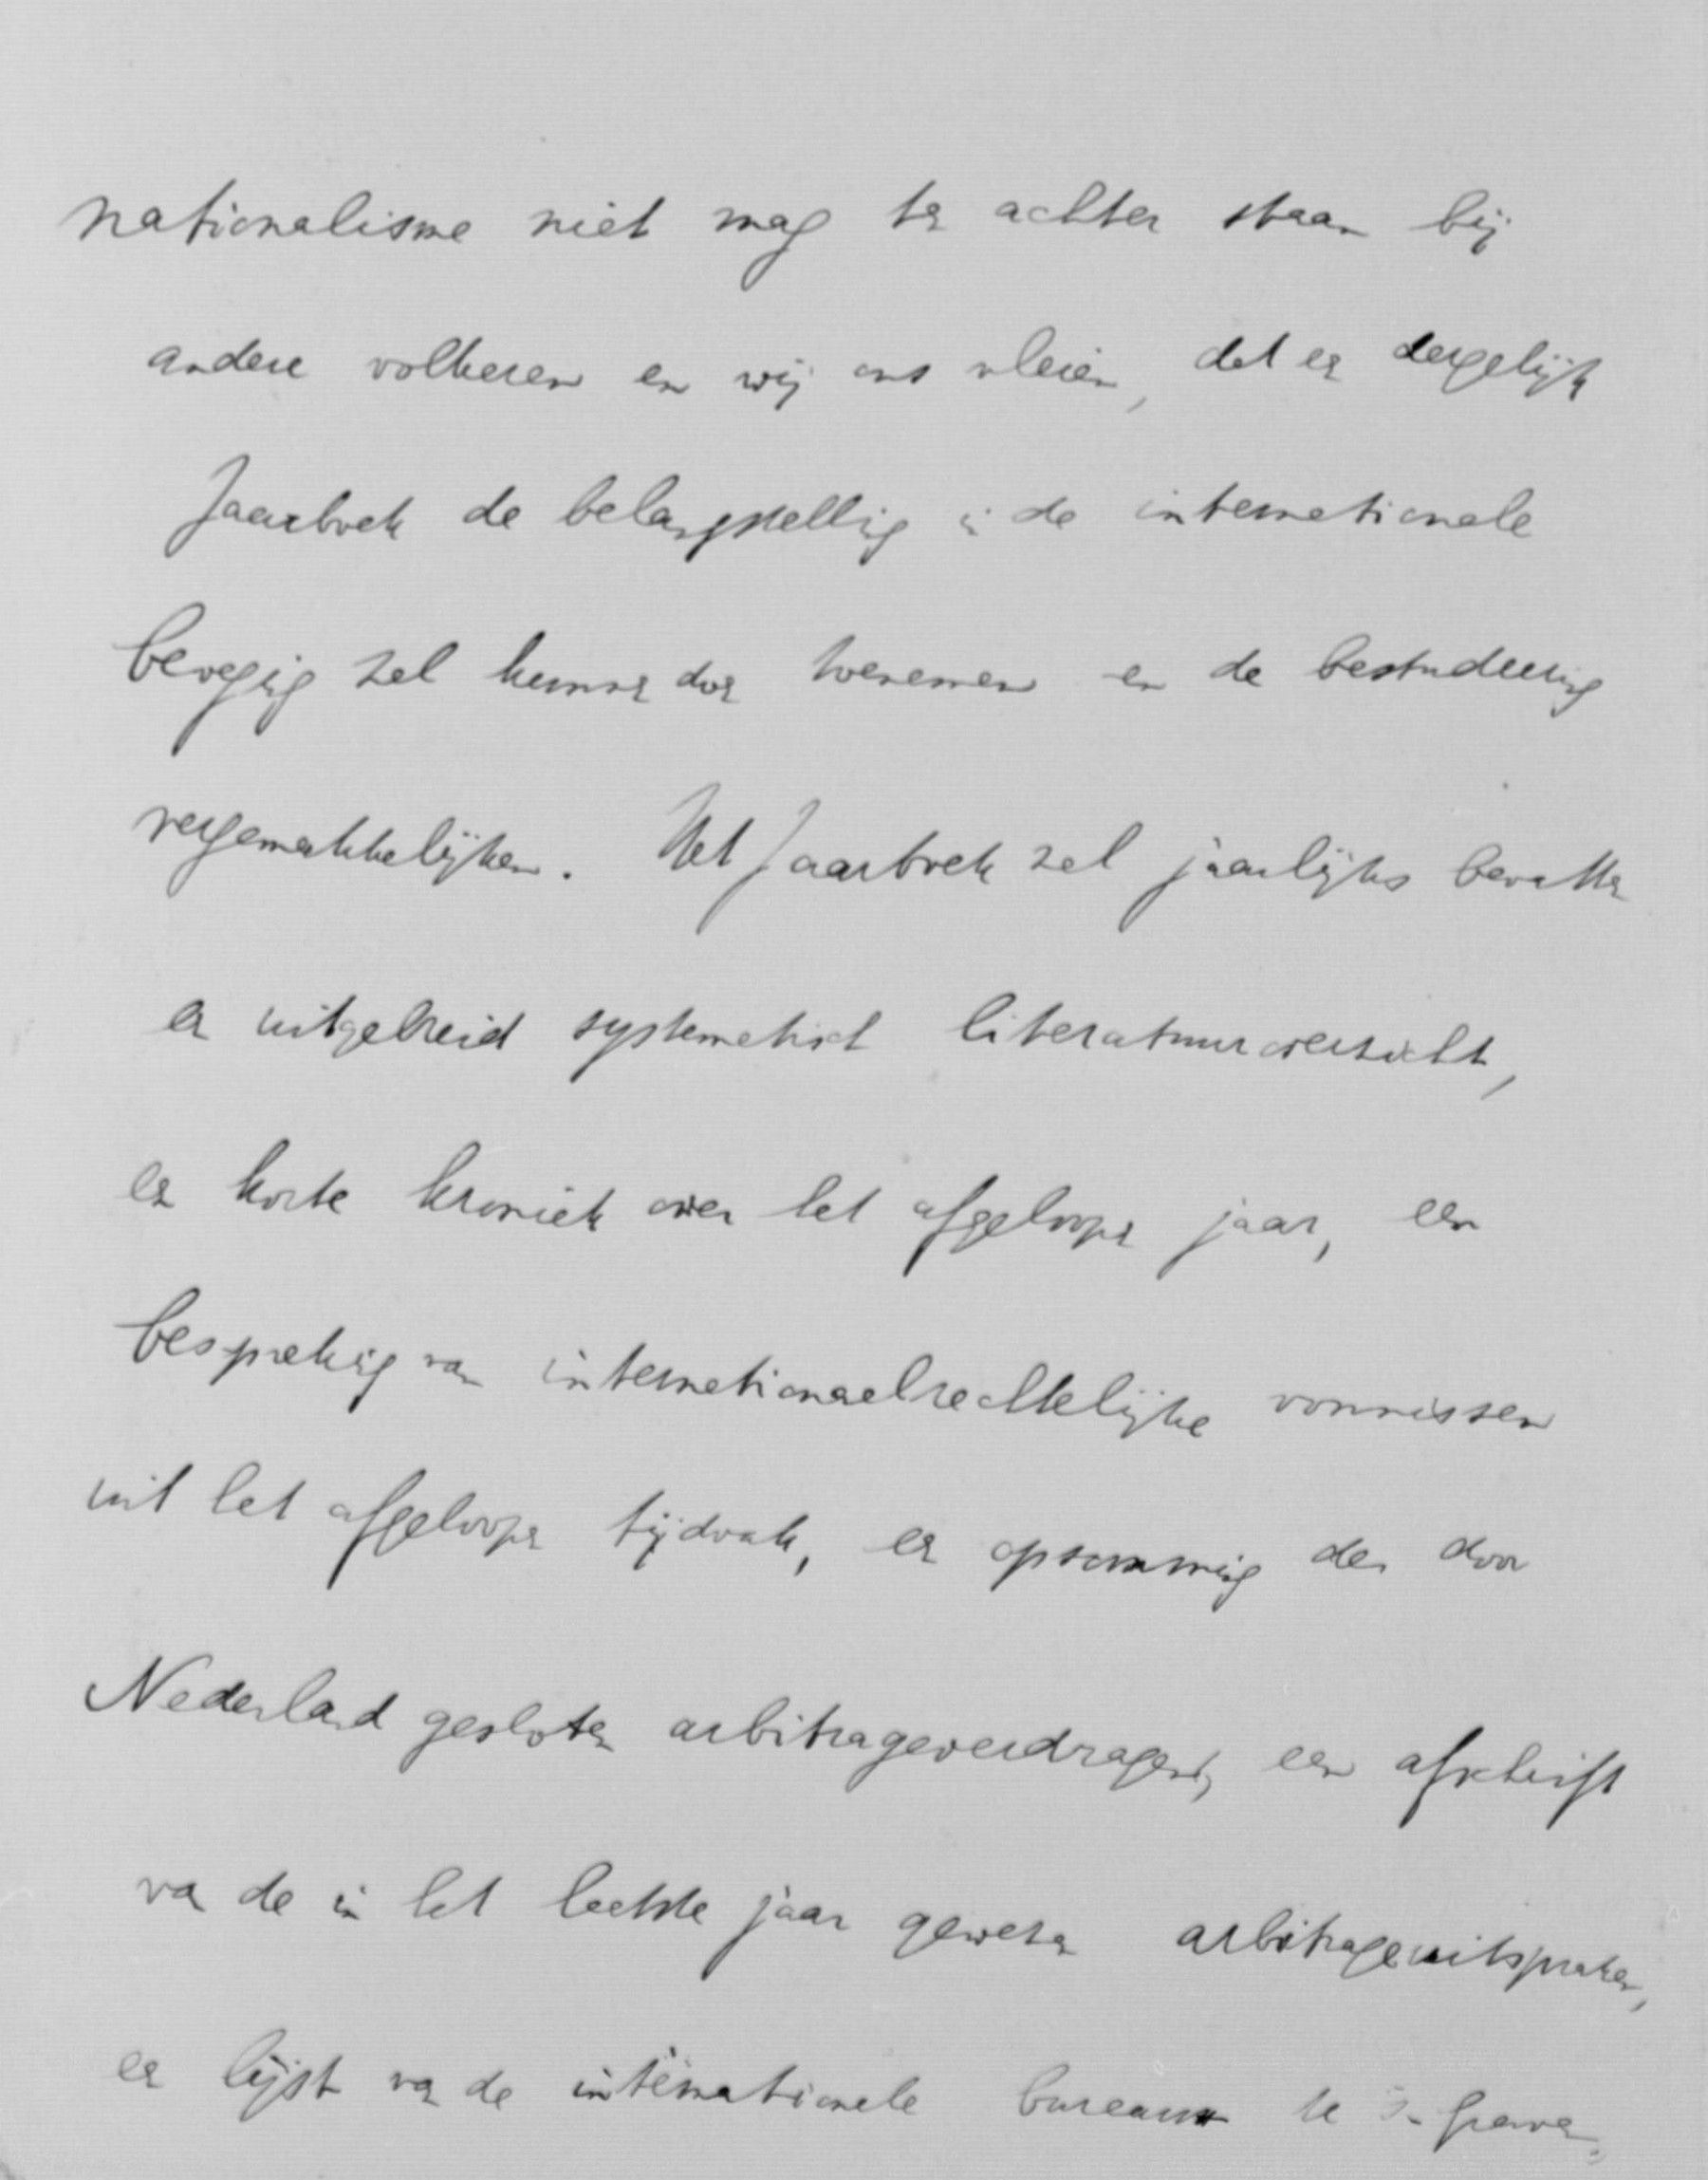 nationalisme niet mag ten achter staan bij
andere volkeren en wij ons vleien, dat een dergelijk
Jaarboek de belangstelling in de internationale
beweging zal kunnen doen toenemen en de bestudeering
vergemakkelijken. Het Jaarboek zal jaarlijks bevatten
een uitgebreid systematisch literatuuroverzicht,
een korte kroniek over het afgeloopen jaar, een
bespreking van internationaalrechtelijke vonnissen
uit het afgeloopen tijdvak, een opsomming der door
Nederland gesloten arbitrageverdragen, een afschrift
van de in het laatste jaar gewezen arbitrageuitspraken,
een lijst van de internationale bureaux te 's-Graven-